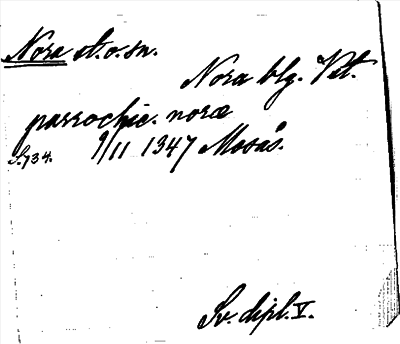 Nora st. o. sn.
Nora blg. Vst.
parrochie. noræ
S. 734. 9/11 1347 Mosås.
Sv. dipl. V.